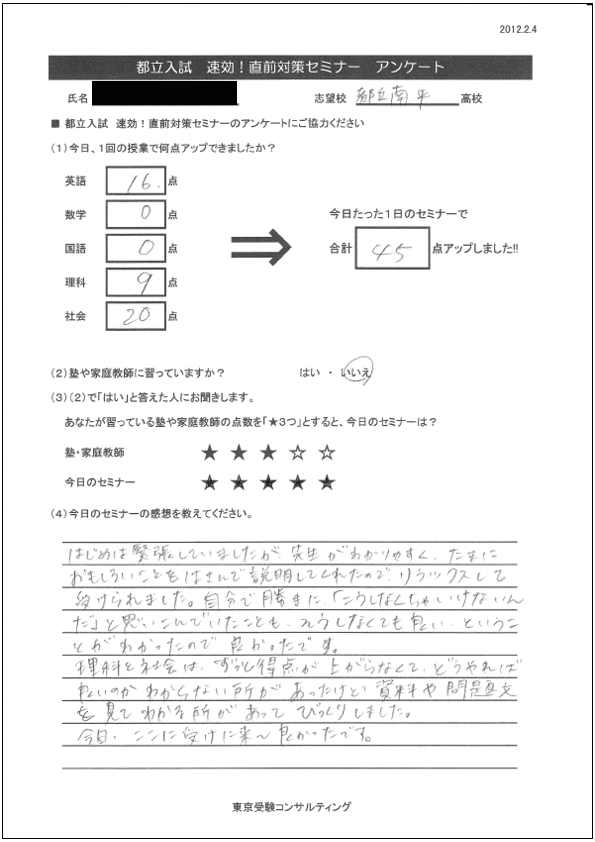 2012.2.4
都立入試 速効！直前対策セミナー アンケート
氏名 志望校 都立南平 高校
■ 都立入試 速効！直前対策セミナーのアンケートにご協力ください
（1）今日、1回の授業で何点アップできましたか？
英語 16. 点
数学 0 点
国語 0 点
理科 9 点
社会 20 点
今日たった1日のセミナーで
合計 45 点アップしました!!
（2）塾や家庭教師に習っていますか？ はい ・ いいえ
（3）（2）で「はい」と答えた人にお聞きします。
あなたが習っている塾や家庭教師の点数を「★3つ」とすると、今日のセミナーは？
塾・家庭教師 ★ ★ ★ ☆ ☆
今日のセミナー ★ ★ ★ ★ ★
（4）今日のセミナーの感想を教えてください。
はじめは緊張していましたが、先生がわかりやすく、たまに
おもしろいことをはさんで説明してくれたので、リラックスして
受けられました。自分で勝手に「こうしなくちゃいけないん
だ」と思いこんでいたことも、そうしなくても良い、というこ
とがわかったので良かったです。
理科と社会は、ずっと得点が上がらなくて、どうやれば
良いのかわからない所があったけど資料や問題文
を見てわかる所があってびっくりしました。
今日、ここに受けに来て良かったです。
東京受験コンサルティング